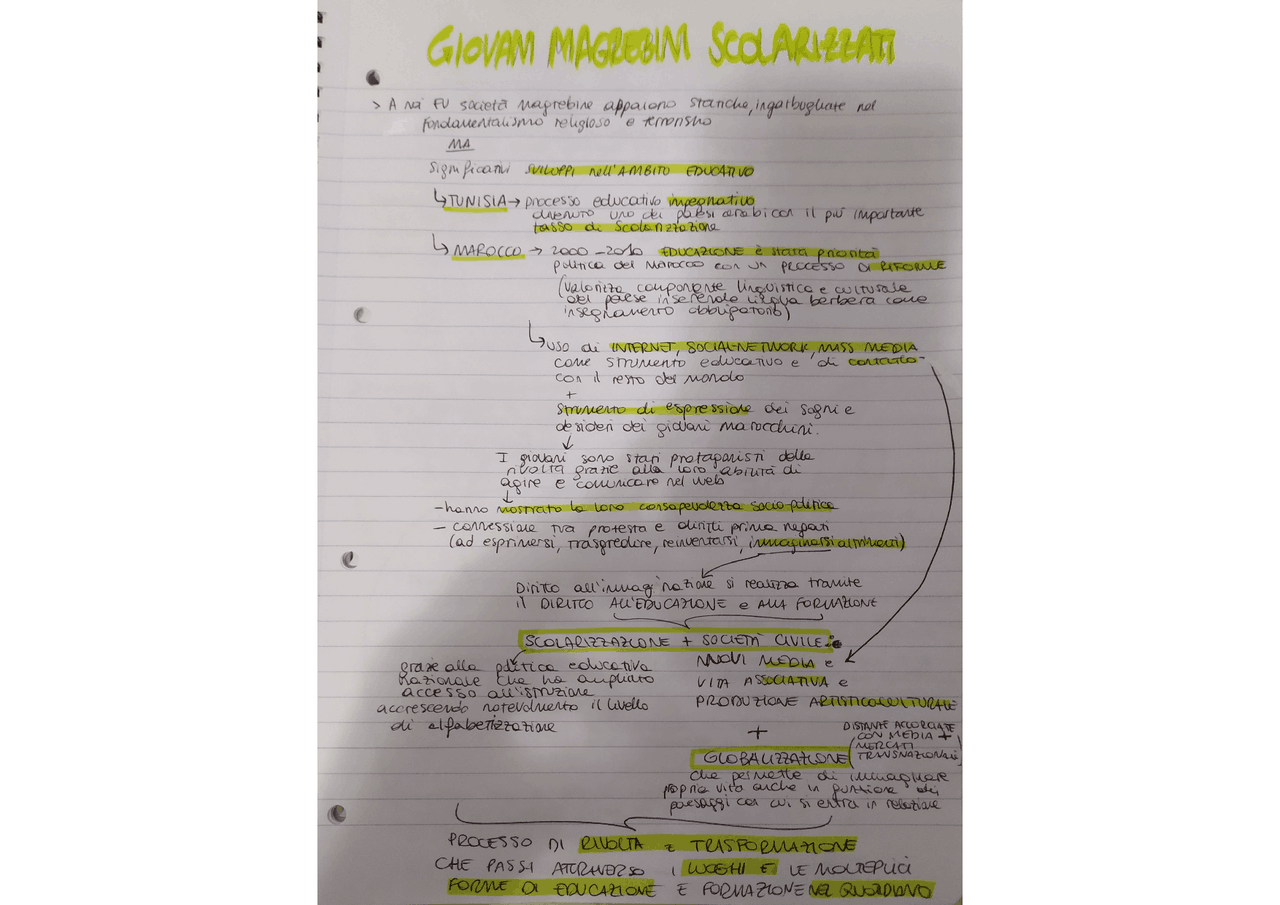 GIOVANI MAGREBINI SCOLARIZZATI
> A noi EU società magrebine appaiono statiche, ingarbugliate nel
fondamentalismo religioso e terrorismo
MA
Significativi SVILUPPI nell'AMBITO EDUCATIVO
↳ TUNISIA → processo educativo impegnativo
divenuto uno dei paesi arabi con il più importante
tasso di Scolarizzazione
↳ MAROCCO → 2000-2010 EDUCAZIONE è stata priorità
politica del MAROCCO con un PROCESSO DI RIFORME
(valorizza componente linguistica e culturale
del paese inserendo lingua berbera come
insegnamento obbligatorio)
↳ uso di INTERNET, SOCIAL NETWORK, MASS MEDIA
come strumento educativo e di contatto
con il resto del mondo
+
strumento di espressione dei sogni e
desideri dei giovani marocchini.
↓
I giovani sono stati protagonisti della
rivolta grazie alla loro abilità di
agire e comunicare nel web
↓
- hanno mostrato la loro consapevolezza socio-politica
- connessione tra protesta e diritti prima negati
(ad esprimersi, trasgredire, reinventarsi, immaginarsi altrimenti)
Diritto all'immaginazione si realizza tramite
il DIRITTO ALL'EDUCAZIONE e ALLA FORMAZIONE
SCOLARIZZAZIONE + SOCIETÀ CIVILE:
grazie alla politica educativa
nazionale che ha ampliato
accesso all'istruzione
accrescendo notevolmente il livello
di alfabetizzazione
NUOVI MEDIA e
VITA ASSOCIATIVA e
PRODUZIONE ARTISTICOCULTURALE
+
GLOBALIZZAZIONE
(DISTANZE ACCORCIATE
CON MEDIA +
MERCATI
TRANSNAZIONALI)
che permette di immaginare
propria vita anche in funzione dei
paesaggi con cui si entra in relazione
PROCESSO DI RIVOLTA E TRASFORMAZIONE
CHE PASSI ATTRAVERSO I LUOGHI E LE MOLTEPLICI
FORME DI EDUCAZIONE E FORMAZIONE NEL QUOTIDIANO